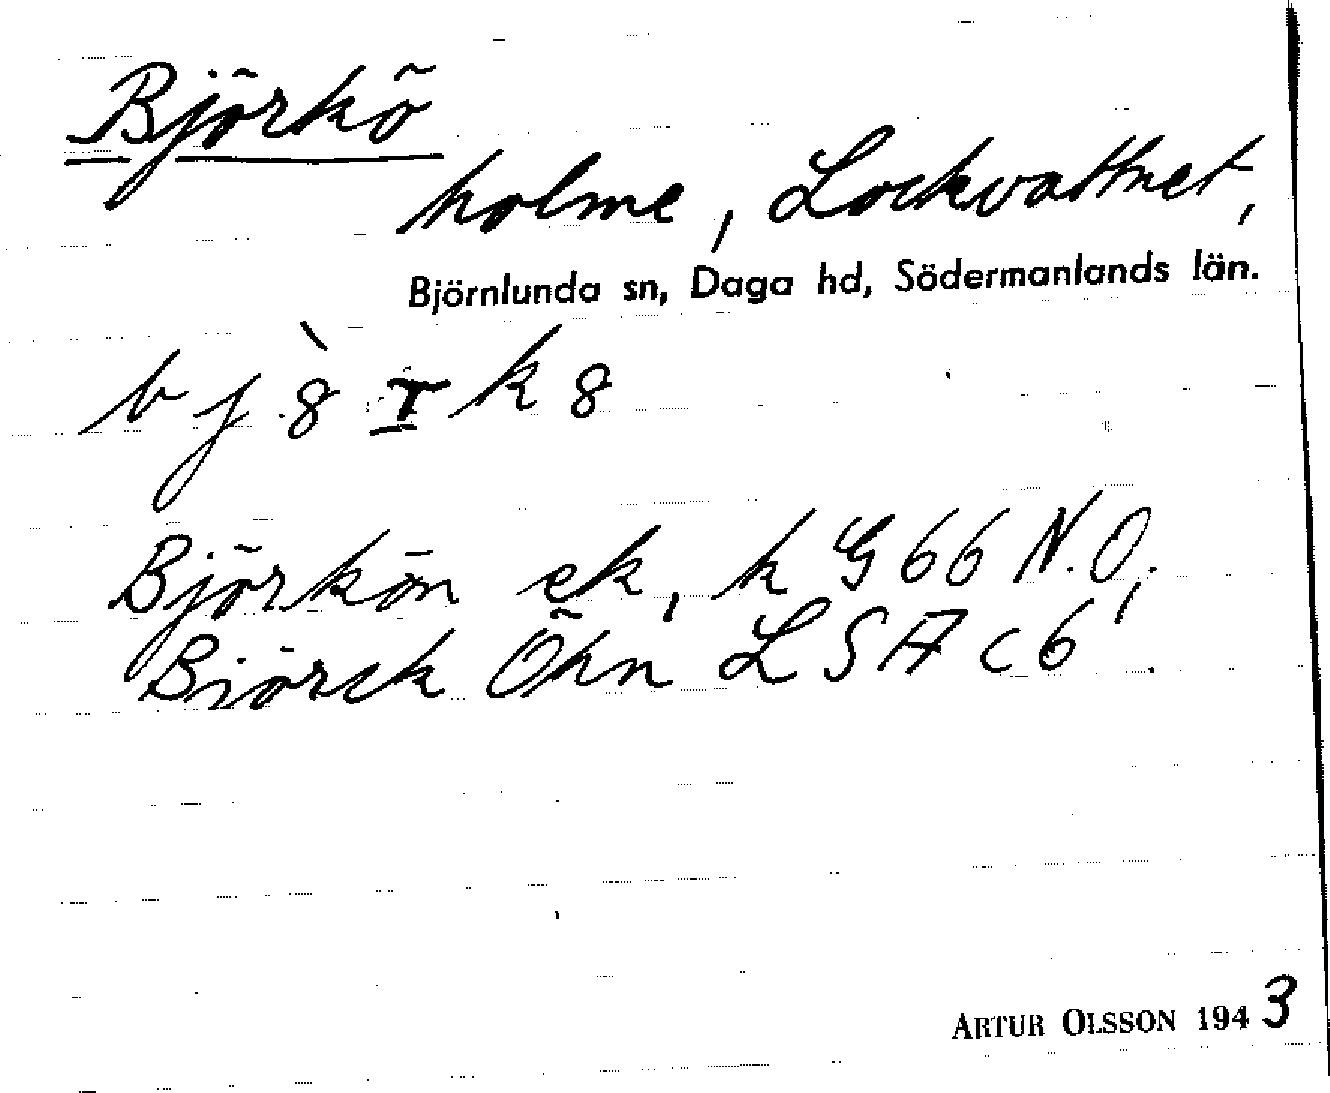 Björkö
holme, Lockvattnet,
Björnlunda sn, Daga hd, Södermanlands län.
bj8̀rk8
Björkön ek, k G66 N.O.,
Biörck Öhn LSA c6.
ARTUR OLSSON 1943